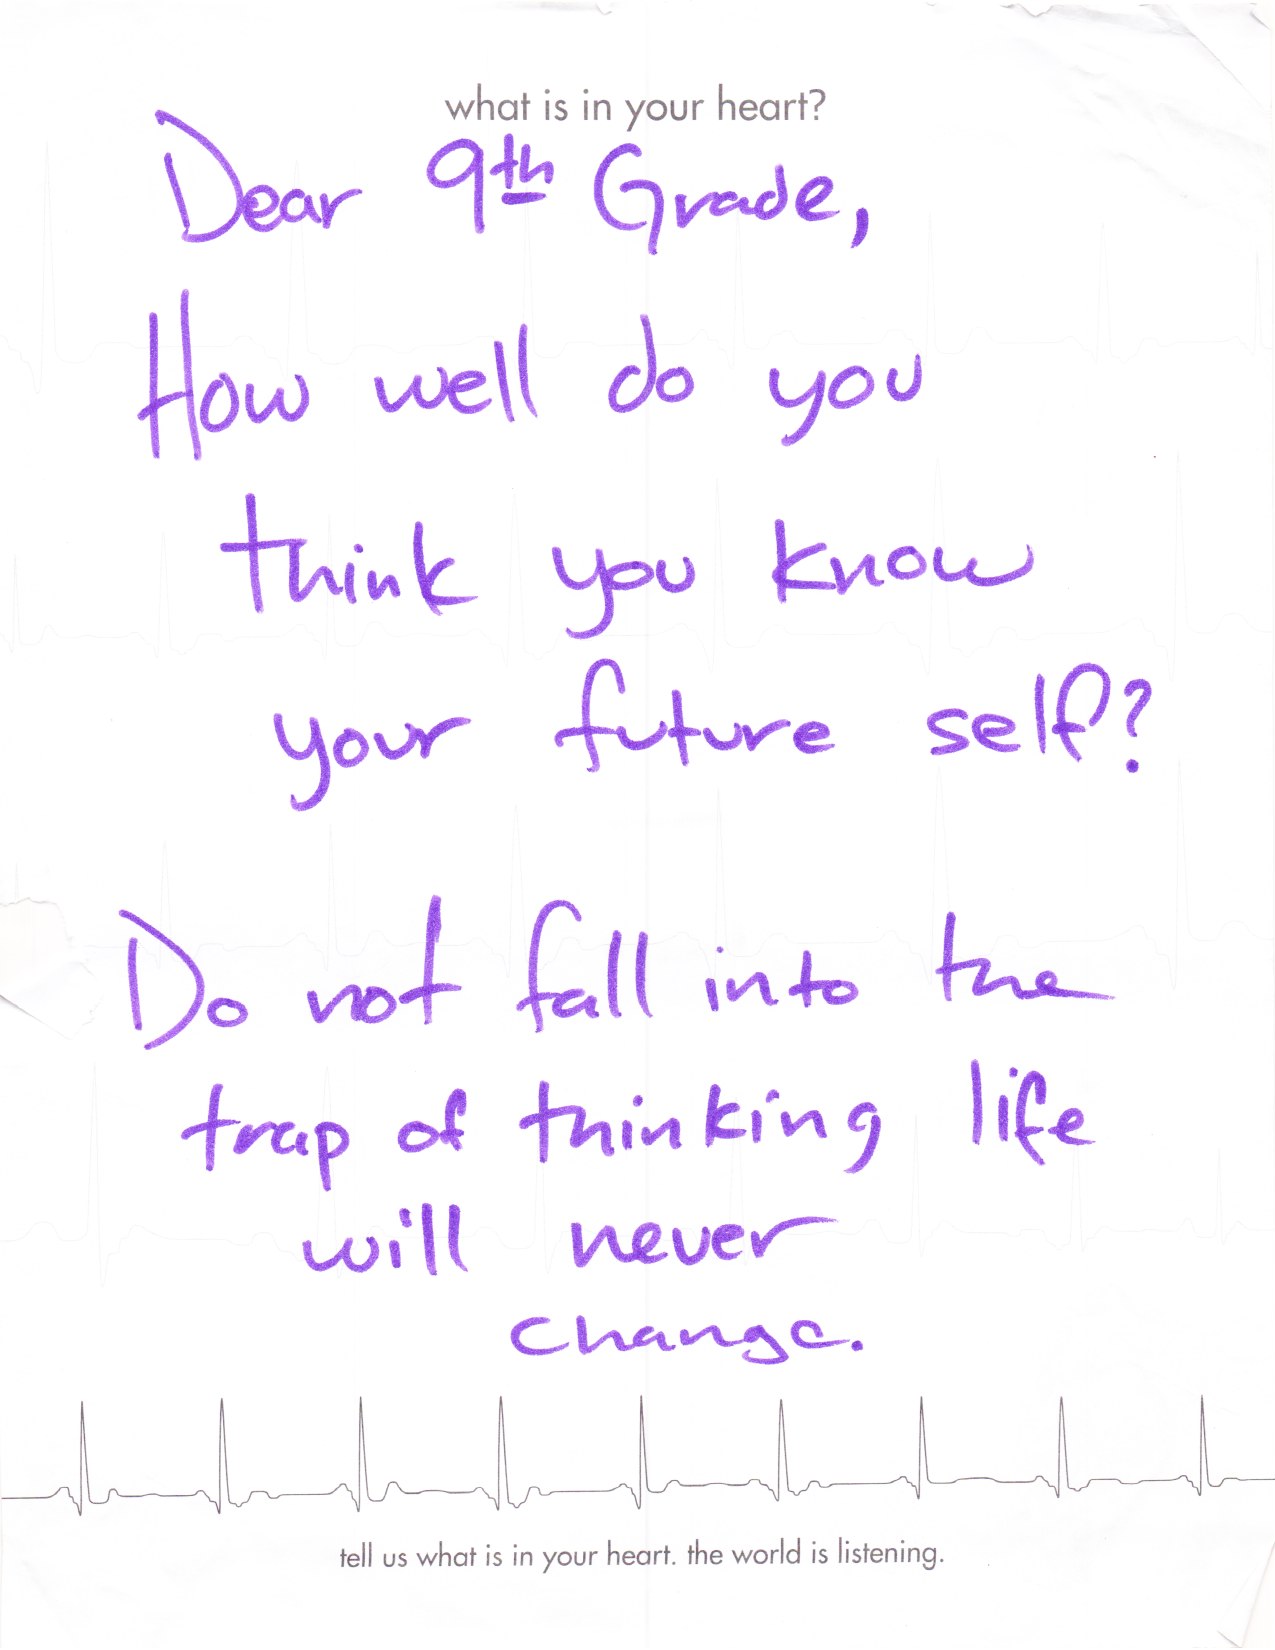 what is in your heart?
Dear 9th Grade,
How well do you
think you know
your future self?
Do not fall into the
trap of thinking life
will never
change.
tell us what is in your heart. the world is listening.